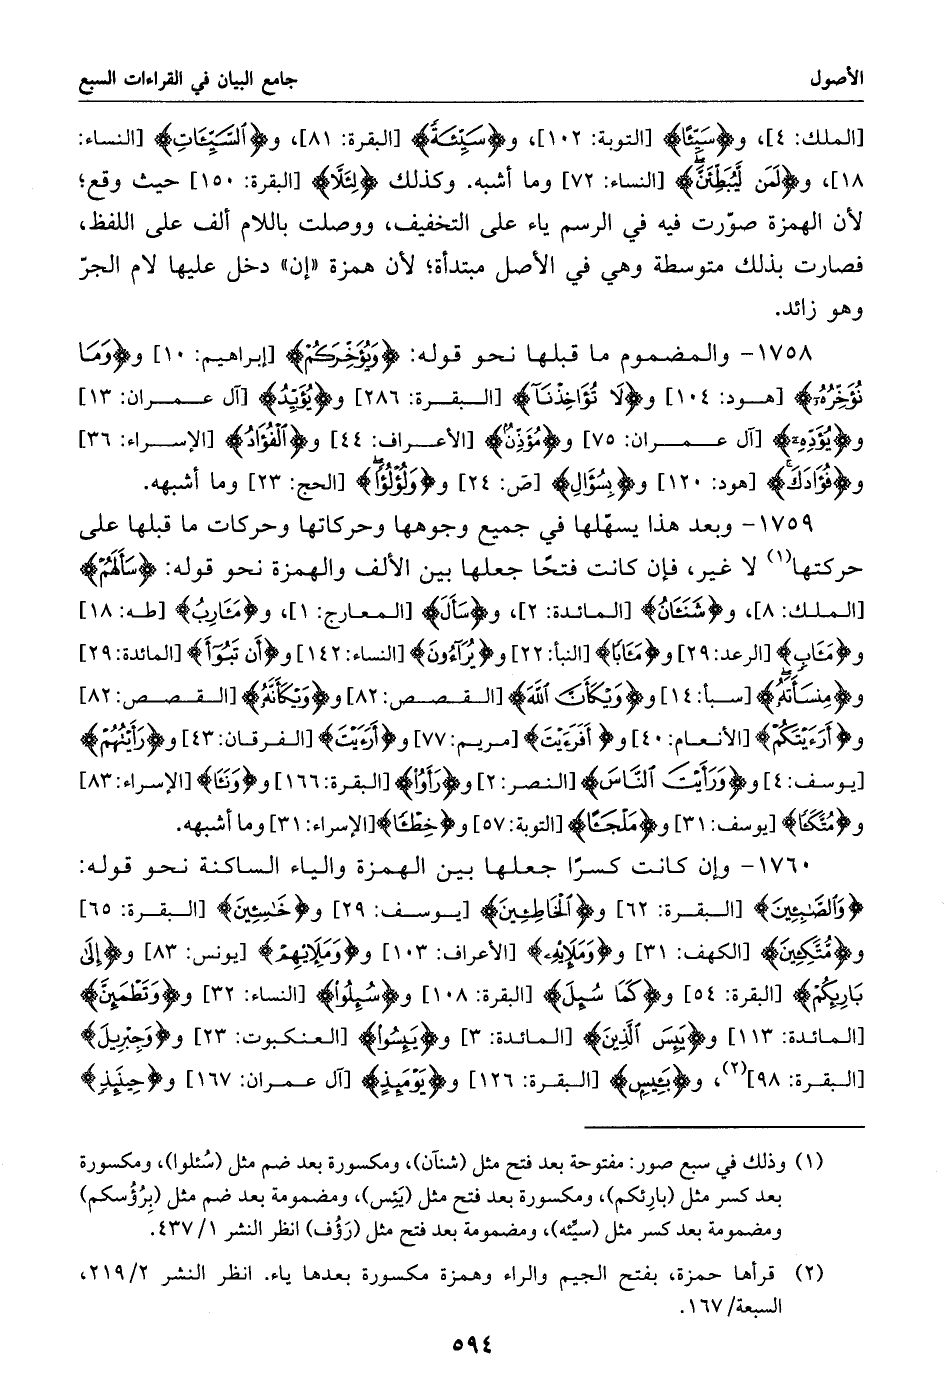 الأصول
جامع البيان في القراءات السبع
[الملك: ٤]، و﴿سَيِّئًا﴾ [التوبة: ١٠٢]، و﴿سَيِّئَةً﴾ [البقرة: ٨١]، و﴿ٱلسَّيِّـَٔاتِ﴾ [النساء:
١٨]، و﴿لَمَن لَّيُبَطِّئَنَّ﴾ [النساء: ٧٢] وما أشبه. وكذلك ﴿لِئَلَّا﴾ [البقرة: ١٥٠] حيث وقع؛
لأن الهمزة صوّرت فيه في الرسم ياء على التخفيف، ووصلت باللام ألف على اللفظ،
فصارت بذلك متوسطة وهي في الأصل مبتدأة؛ لأن همزة «إن» دخل عليها لام الجرّ
وهو زائد.
١٧٥٨- والمضموم ما قبلها نحو قوله: ﴿وَيُؤَخِّرَكُمْ﴾ [إبراهيم: ١٠] و﴿وَمَا
نُؤَخِّرُهُۥٓ﴾ [هود: ١٠٤] و﴿لَا تُؤَاخِذْنَآ﴾ [البقرة: ٢٨٦] و﴿يُؤَيِّدُ﴾ [آل عمران: ١٣]
و﴿يُؤَدِّهِۦٓ﴾ [آل عمران: ٧٥] و﴿مُؤَذِّنٌۢ﴾ [الأعراف: ٤٤] و﴿ٱلْفُؤَادَ﴾ [الإسراء: ٣٦]
و﴿فُؤَادَكَۚ﴾ [هود: ١٢٠] و﴿بِسُؤَالِ﴾ [صٓ: ٢٤] و﴿وَلُؤْلُؤًاۖ﴾ [الحج: ٢٣] وما أشبهه.
١٧٥٩- وبعد هذا يسهّلها في جميع وجوهها وحركاتها وحركات ما قبلها على
حركتها(١) لا غير، فإن كانت فتحًا جعلها بين الألف والهمزة نحو قوله: ﴿سَأَلَهُمْ﴾
[الملك: ٨]، و﴿شَنَـَٔانُ﴾ [المائدة: ٢]، و﴿سَأَلَ﴾ [المعارج: ١]، و﴿مَـَٔارِبُ﴾ [طه: ١٨]
و﴿مَـَٔابٖ﴾ [الرعد: ٢٩] و﴿مَـَٔابٗا﴾ [النبأ: ٢٢] و﴿يُرَآءُونَ﴾ [النساء: ١٤٢] و﴿أَن تَبُوٓأَ﴾ [المائدة: ٢٩]
و﴿مِنسَأَتَهُۥۖ﴾ [سبأ: ١٤] و﴿وَيْكَأَنَّ ٱللَّهَ﴾ [القصص: ٨٢] و﴿وَيْكَأَنَّهُۥ﴾ [القصص: ٨٢]
و﴿أَرَءَيْتَكُمْ﴾ [الأنعام: ٤٠] و﴿أَفَرَءَيْتَ﴾ [مريم: ٧٧] و﴿أَرَءَيْتَ﴾ [الفرقان: ٤٣] و﴿رَأَيْتُهُمْ﴾
[يوسف: ٤] و﴿وَرَأَيْتَ ٱلنَّاسَ﴾ [النصر: ٢] و﴿رَأَوُا﴾ [البقرة: ١٦٦] و﴿وَنَـَٔا﴾ [الإسراء: ٨٣]
و﴿مُتَّكَـٔٗا﴾ [يوسف: ٣١] و﴿مَلْجَـًٔا﴾ [التوبة: ٥٧] و﴿خِطْـٔٗا﴾ [الإسراء: ٣١] وما أشبهه.
١٧٦٠- وإن كانت كسرًا جعلها بين الهمزة والياء الساكنة نحو قوله:
﴿وَٱلصَّٰبِـِٔينَ﴾ [البقرة: ٦٢] و﴿ٱلْخَاطِـِٔينَ﴾ [يوسف: ٢٩] و﴿خَٰسِـِٔينَ﴾ [البقرة: ٦٥]
و﴿مُّتَّكِـِٔينَ﴾ [الكهف: ٣١] و﴿وَمَلَإِيْهِۦ﴾ [الأعراف: ١٠٣] و﴿وَمَلَإِيْهِمْ﴾ [يونس: ٨٣] و﴿إِلَىٰ
بَارِئِكُمْ﴾ [البقرة: ٥٤] و﴿كَمَا سُئِلَ﴾ [البقرة: ١٠٨] و﴿سُئِلُوا﴾ [النساء: ٣٢] و﴿وَتَطْمَئِنَّ﴾
[المائدة: ١١٣] و﴿يَئِسَ ٱلَّذِينَ﴾ [المائدة: ٣] و﴿يَئِسُوا﴾ [العنكبوت: ٢٣] و﴿وَجِبْرِيلَ﴾
[البقرة: ٩٨](٢)، و﴿بَئِيسٍ﴾ [البقرة: ١٢٦] و﴿يَوْمَئِذٍ﴾ [آل عمران: ١٦٧] و﴿حِينَئِذٍ﴾
(١) وذلك في سبع صور: مفتوحة بعد فتح مثل (شنآن)، ومكسورة بعد ضم مثل (سُئلوا)، ومكسورة
بعد كسر مثل (بارِئكم)، ومكسورة بعد فتح مثل (يَئِس)، ومضمومة بعد ضم مثل (بِرُؤُسكم)
ومضمومة بعد كسر مثل (سيِّئه)، ومضمومة بعد فتح مثل (رَؤُف) انظر النشر ١/ ٤٣٧.
(٢) قرأها حمزة، بفتح الجيم والراء وهمزة مكسورة بعدها ياء. انظر النشر ٢/ ٢١٩،
السبعة/ ١٦٧.
٥٩٤